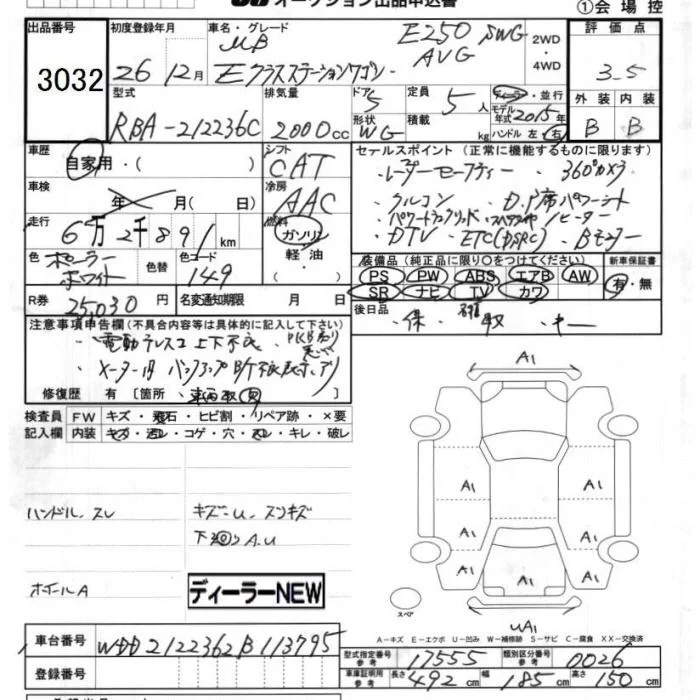 オークション出品申込書
①会場控
出品番号 初度登録年・月 車名・グレード 評価点
3032 26 12月 MB Eクラスステーションワゴン E250 SWG AVG 2WD・4WD 3.5
型式 排気量 ドア 定員 ディーラー・並行 外装 内装
RBA-212236C 2000cc 5 5人 モデル年式 2015年 B B
形状 WG 積載 kg ハンドル 左・右
車歴 シフト セールスポイント(正常に機能するものに限ります)
自家用・( ) CAT ・レーダーセーフティー ・360°カメラ
車検 冷房 ・クルコン ・D.P席パワーシート
年 月( 日) AAC ・パワートランクリッド
走行 燃料 ・DTV ・ETC(DSRC) ・Bモニター
6万2千891km ガソリン
軽油
色 色替 色コード ・( ) 装備品(純正品に限り○をつけてください) 新車保証書
ポーラーホワイト 149 PS PW ABS エアB AW 有・無
R券 25,030円 名変通知期限 月 日 SR ナビ TV カワ
注意事項申告欄(不具合内容等は具体的に記入して下さい) 後日品 ・保 ・取 ・キー
・電動テレスコ上下不良
・メーター内
修復歴 有〔箇所 〕
検査員 FW キズ・飛石・ヒビ割・リペア跡・×要
記入欄 内装 キズ・汚レ・コゲ・穴・スレ・キレ・破レ
A1
A1 A1
A1 A1
A1 A1 A1
スペア UA1
ハンドル スレ キズ-U スリキズ
下廻り A.U
ホイールA
ディーラーNEW
A-キズ E-エクボ U-凹み W-補修跡 S-サビ C-腐食 XX-交換済
車台番号 WDD2122362B113795 型式指定番号 参考 17555 類別区分番号 参考 0026
登録番号 車庫証明用 参考 長さ 492cm 幅 185cm 高さ 150cm